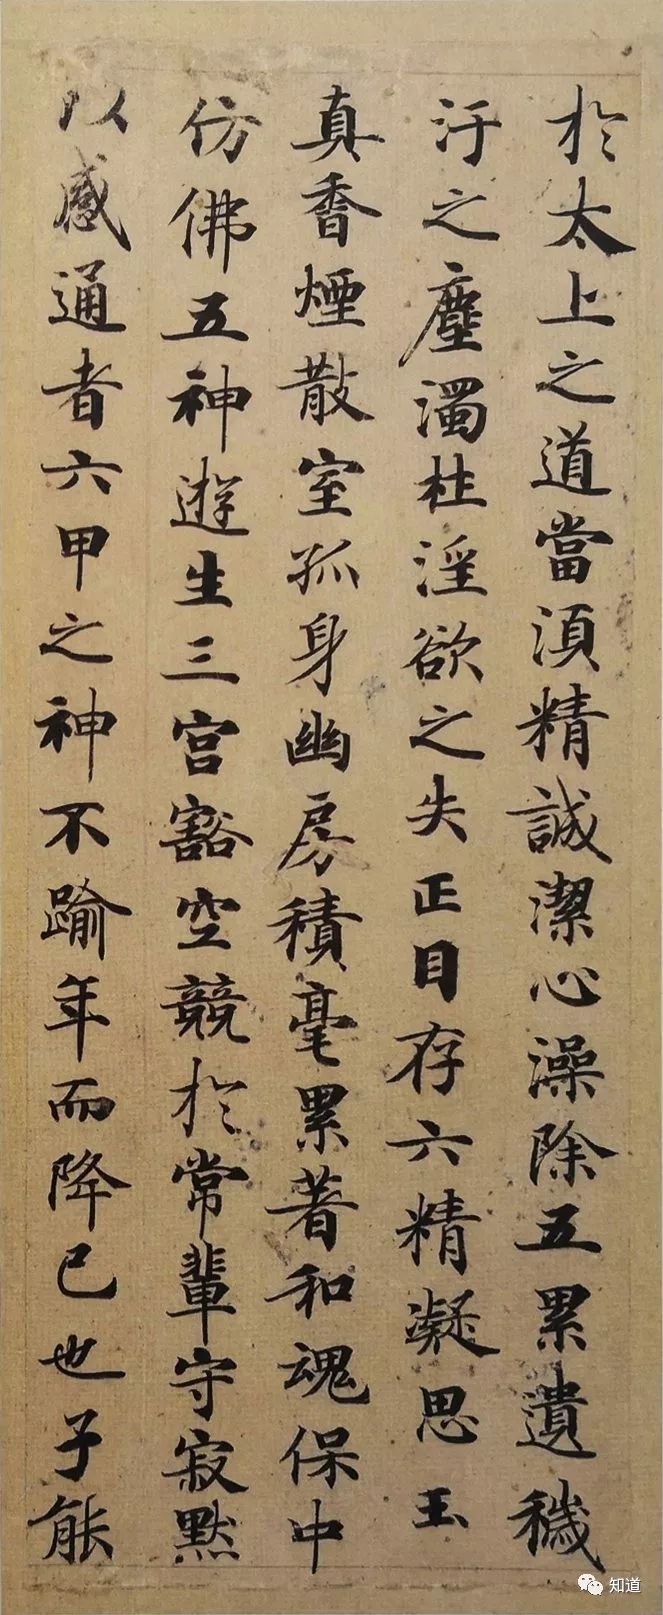 於太上之道當湏精誠潔心澡除五累遺穢
汙之塵濁柱淫欲之失正目存六精凝思玉
真香煙散室孤身幽房積毫累著和魂保中
仿佛五神遊生三宮豁空競於常輩守寂默
以感通者六甲之神不踰年而降已也子能
知道